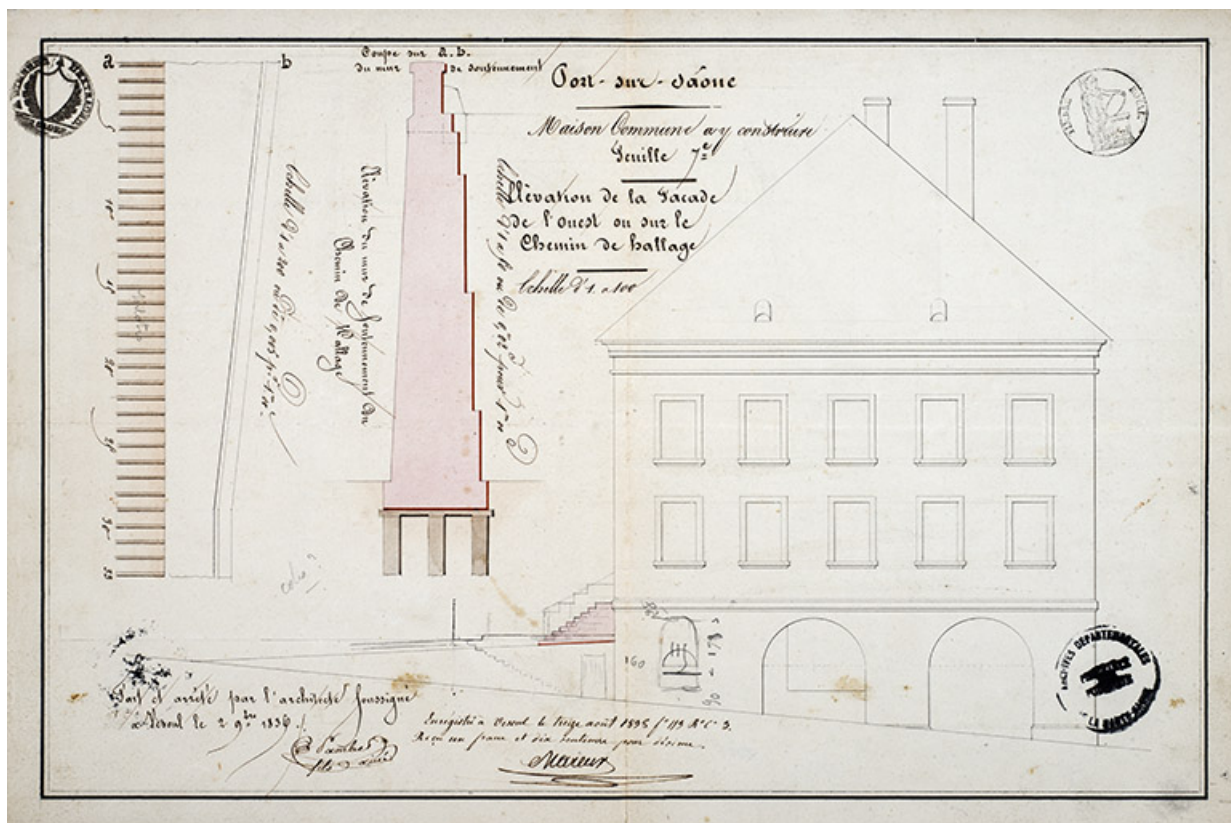 a
b
Coupe sur a.b.
du mur de soutènnement
Port-sur-Sâone
Maison Commune a y construire
Feuille 7e
Elévation de la Facade
de l'ouest ou sur le
Chemin de hallage
Echelle d'1. a 100
Echelle d'1 a 200 ou de 0,005 pr 1m
Elévation du mur de soutennement du
Chemin de Hallage
Echelle d'1 a 50 ou de 0,02 pour 1m
5
10
15
20
25
30
33
160
90 - 178
Fait et arrêté par l'architecte soussigné
a Vesoul le 2 9bre 1836
fils ainé
Enregistré a Vesoul le treize août 1838 f° 119 R° C 3.
Reçu un franc et dix centimes pour décime
ARCHIVES DÉPARTEMENTALES
LA HAUTE-SAONE